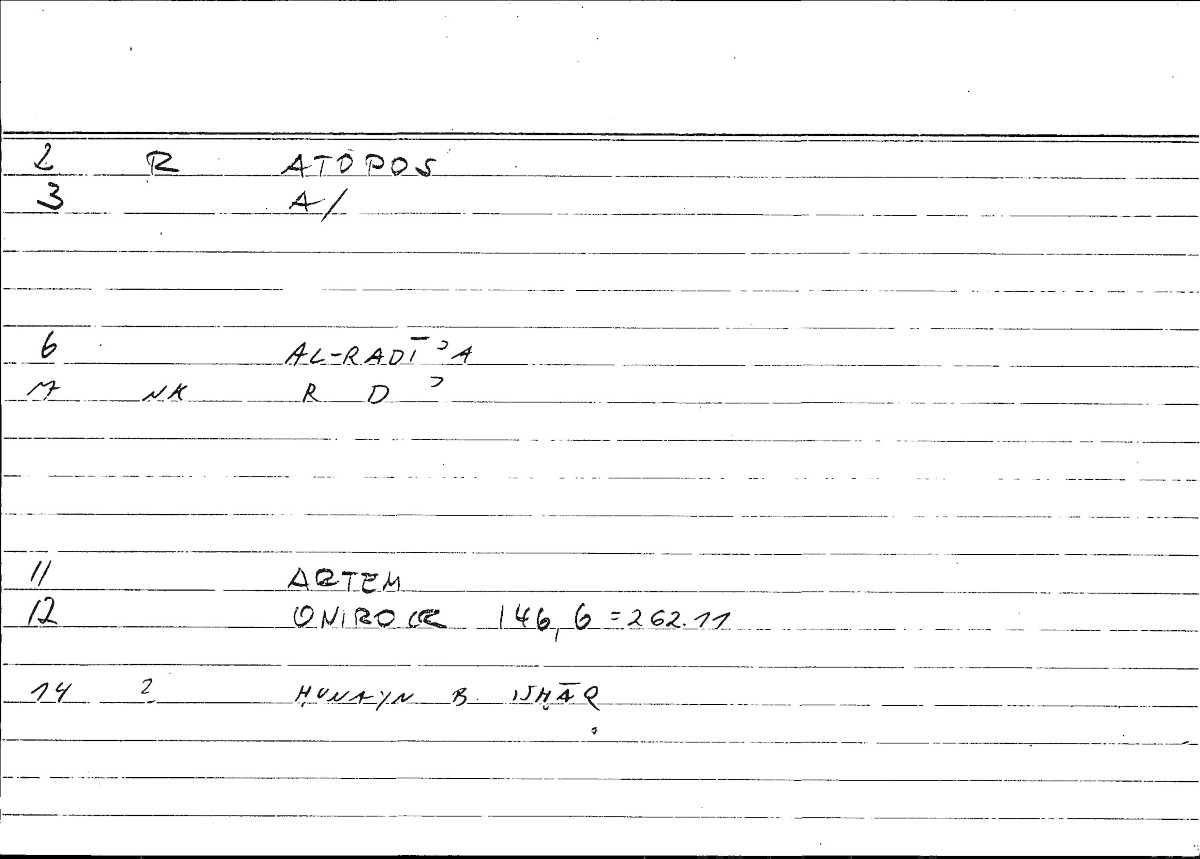 2 R ATOPOS
3 A/
6 AL-RADĪʾA
7 NK R D ʾ
11 ARTEM
12 ONIROCR 146,6=262.11
14 2 ḤUNAYN B. ISḤĀQ